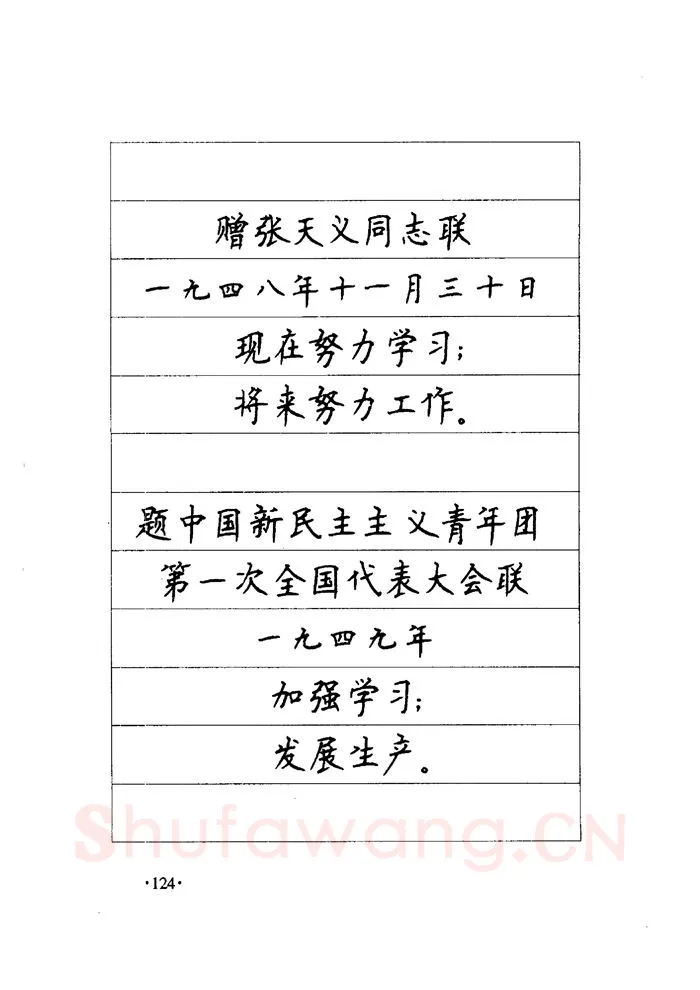 赠张天义同志联
一九四八年十一月三十日
现在努力学习;
将来努力工作。
题中国新民主主义青年团
第一次全国代表大会联
一九四九年
加强学习;
发展生产。
Shufawang.CN
·124·